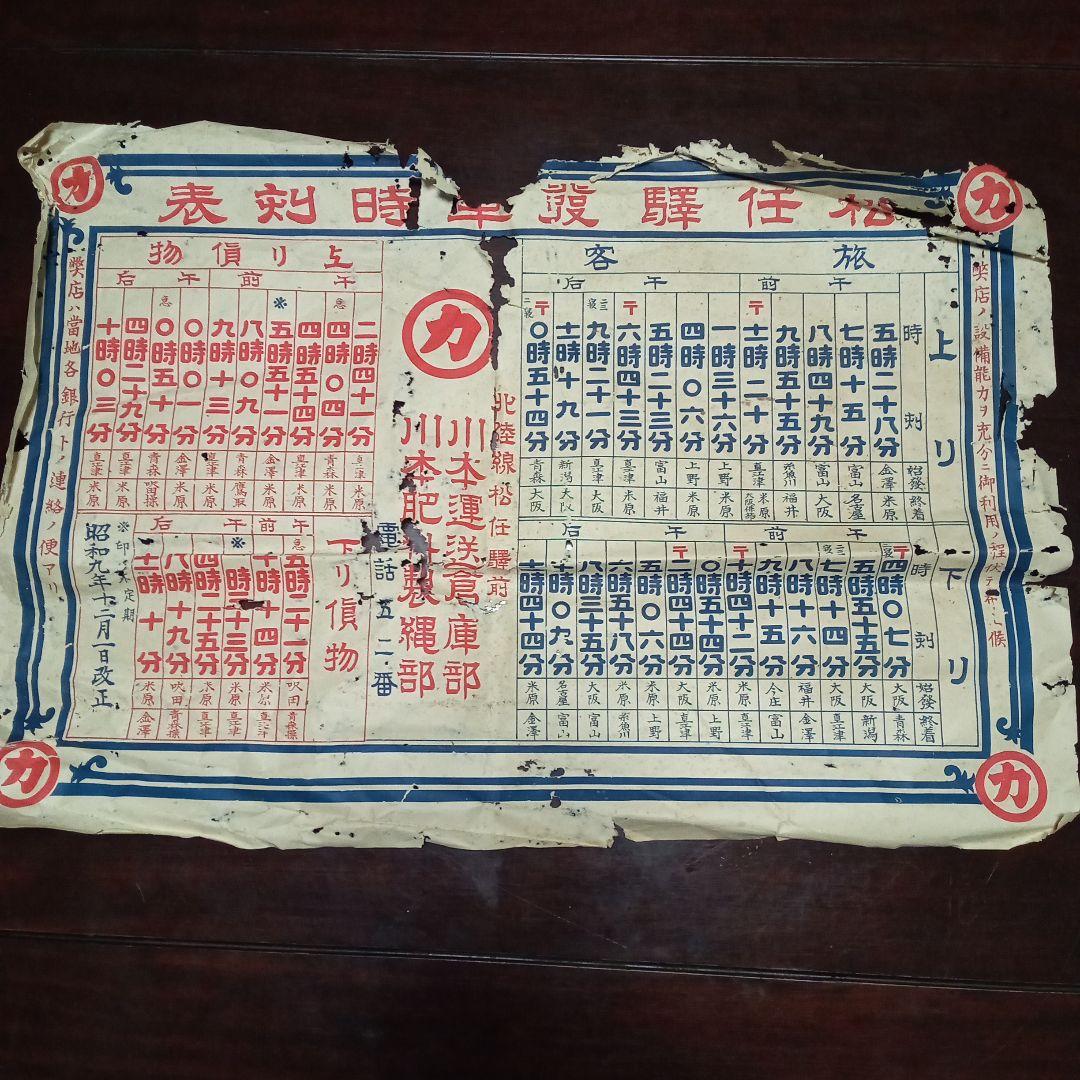 松任驛發車時刻表
弊店ノ設備能力ヲ充分ニ御利用ノ程伏テ
候
旅客
上リ
時刻
始發 終着
午前
五時二十八分 金澤 米原
七時十五分 富山 名古屋
八時四十九分 富山 大阪
九時五十五分 糸魚川 福井
〒 十一時二十分 直江津 米原
午后
一時三十六分 上野 米原
四時〇六分 上野 大阪
五時二十三分 富山 福井
〒 六時四十三分 直江津 米原
三寝 九時二十一分 直江津 大阪
十一時十九分 新潟 大阪
二寝 〒 〇時五十四分 青森 大阪
下リ
時刻
始發 終着
午前
〒 四時〇七分 大阪 青森
五時五十五分 大阪 新潟
七時十四分 大阪 直江津
八時十六分 福井 金澤
九時十五分 今庄 富山
〒 十時四十二分 米原 直江津
午后
〇時五十四分 米原 上野
〒 二時四十四分 大阪 直江津
五時〇六分 米原 上野
六時五十八分 米原 糸魚川
八時三十五分 大阪 富山
時〇九分 名古屋 富山
時四十四分 米原 金澤
カ
北陸線松任驛前
川本運送倉庫部
川本肥料製縄部
電話 五二番
上リ貨物
午前
二時四十一分 直江津 米原
急 四時〇四分 青森 米原
四時五十四分 直江津 米原
※ 五時五十一分 金澤 米原
八時〇九分 青森 鷹取
九時十三分 直江津 米原
午后
〇時〇一分 金澤 米原
急 〇時五十分 青森 吹田操
四時二十九分 直江津 米原
十時〇三分 直江津 米原
下リ貨物
午前
急 五時二十一分 吹田 青森操
十時十四分 米原 直江津
※ 時三十三分 米原 直江津
午后
四時二十五分 米原 直江津
八時十九分 吹田 青森操
十一時十分 米原 金澤
※印ハ不定期
昭和九年十二月一日改正
弊店ハ當地各銀行トノ連絡ノ便アリ
カ
カ
カ
カ